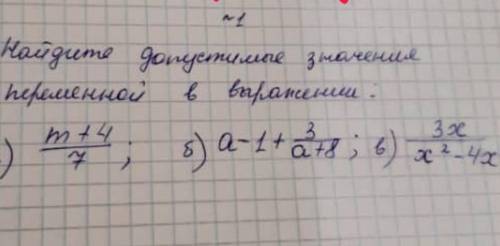 ~1
Найдите допустимые значения
переменной в выражении:
) m+4/7; б) a-1+3/a+8; в) 3x/x²-4x